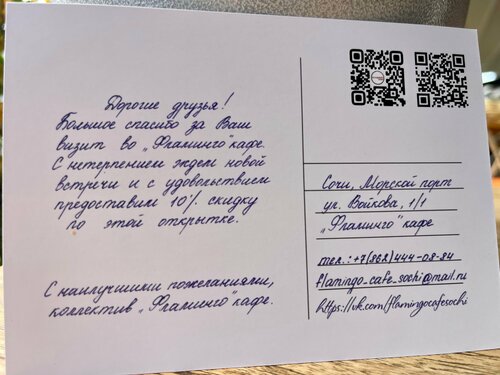 Дорогие друзья!
Большое спасибо за Ваш
визит во „Фламинго" кафе.
С нетерпением ждем новой
встречи и с удовольствием
предоставим 10% скидку
по этой открытке.
С наилучшими пожеланиями,
коллектив „Фламинго" кафе.
Сочи, Морской порт
ул. Войкова, 1/1
„Фламинго" кафе
тел.: +7(862)444-08-84
flamingo_cafe_sochi@mail.ru
https://vk.com/flamingocafesochi